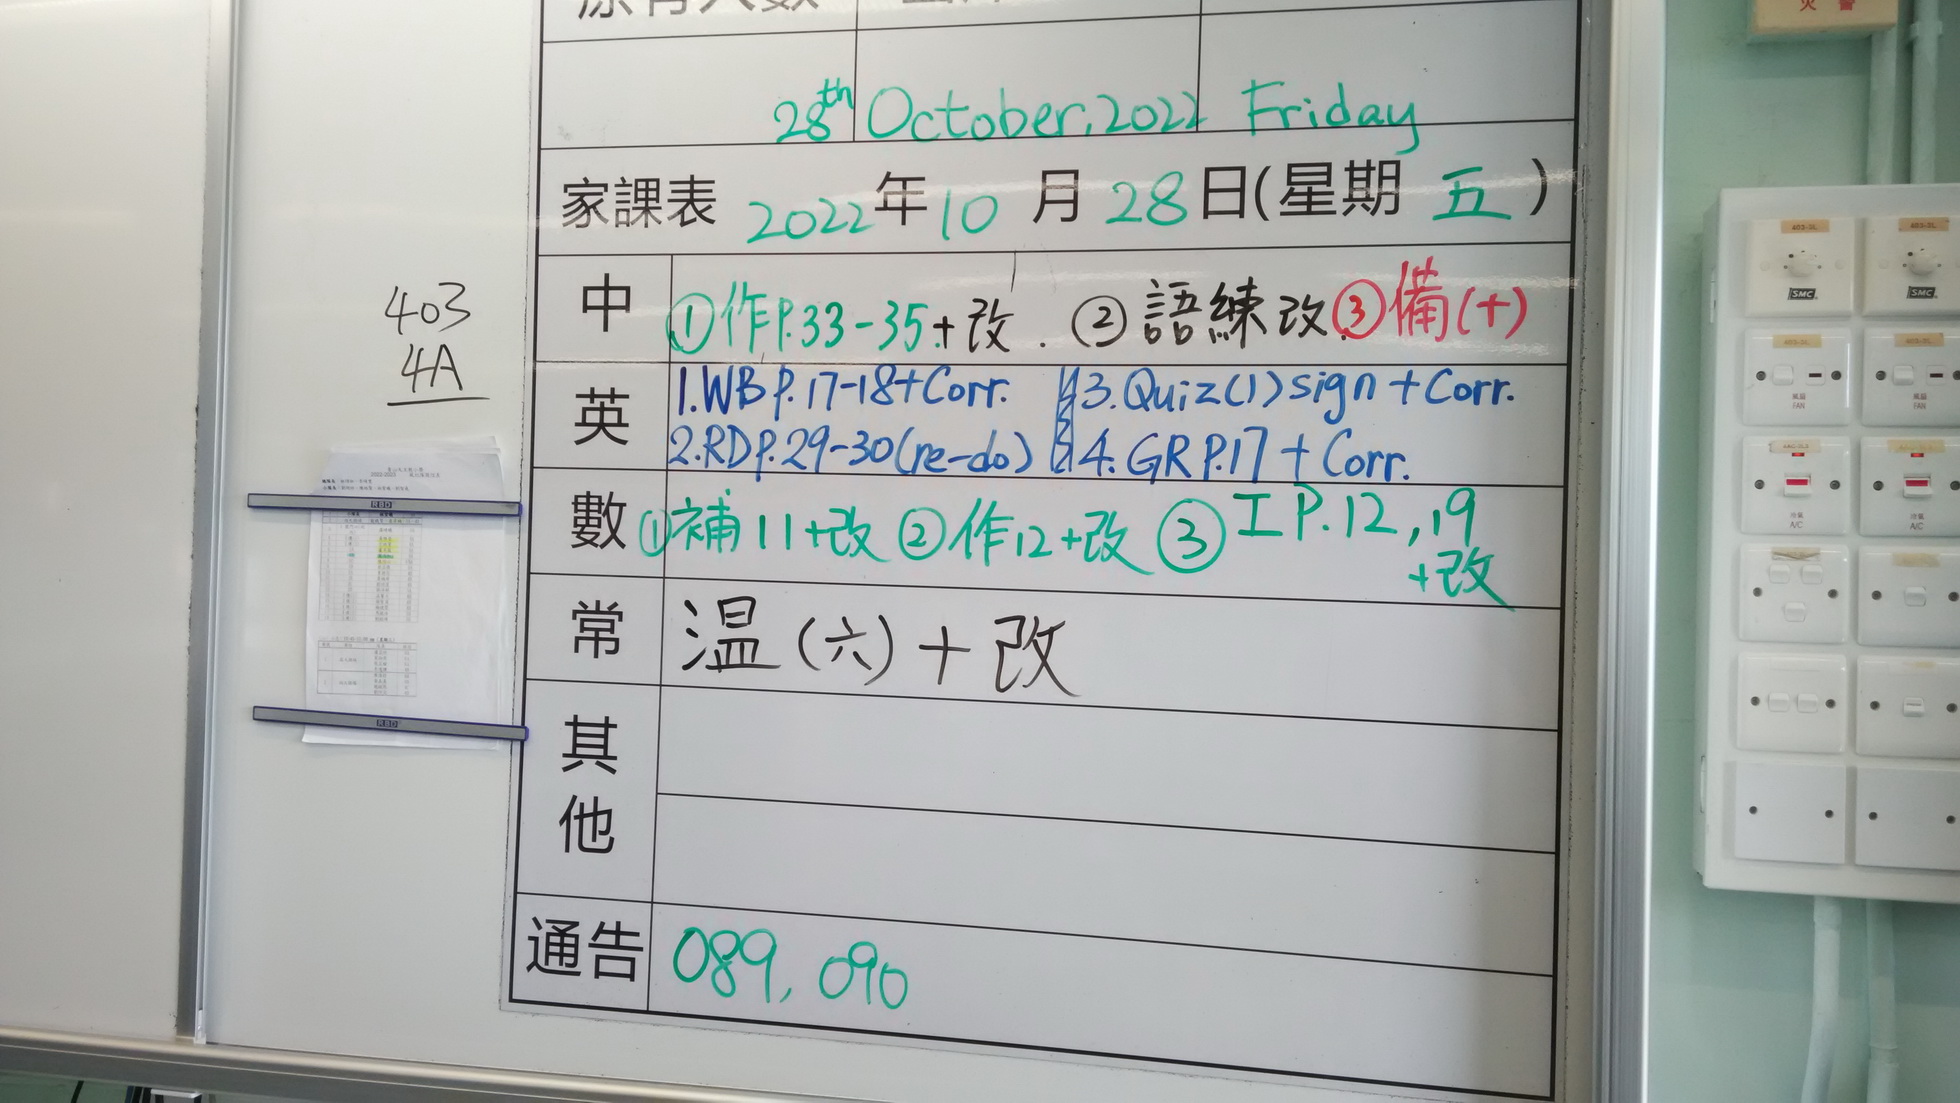 28th October, 2022 Friday
家課表 2022年10月28日(星期五)
403
4A
中 ①作P.33-35+改. ②語練改 ③備(十)
英 1.WB P.17-18+Corr. 3.Quiz(1)sign+Corr.
2.RD P.29-30(re-do) 4.GR P.17+Corr.
數 ①補11+改 ②作12+改 ③IP.12,19
+改
常 温(六)+改
其他
通告 089, 090
RBD
RBD
火警
SMC
SMC
風扇
FAN
風扇
FAN
冷氣
A/C
冷氣
A/C